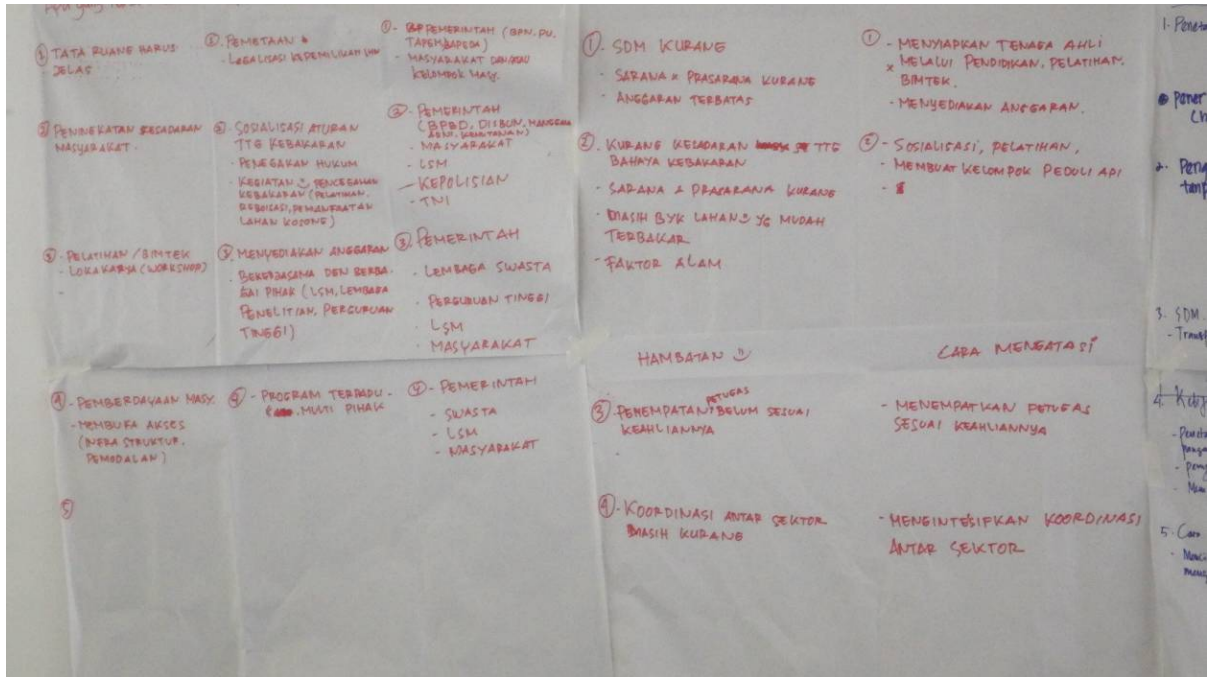 Apa yang
① TATA RUANG HARUS
JELAS
② PENINGKATAN KESADARAN
MASYARAKAT.
③ - PELATIHAN / BIMTEK
- LOKAKARYA (WORKSHOP)
-
④ - PEMBERDAYAAN MASY.
- MEMBUKA AKSES
(INFRA STRUKTUR,
PEMODALAN)
⑤
①. PEMETAAN
- LEGALISASI KEPEMILIKAN LHN
②. SOSIALISASI ATURAN
TTG KEBAKARAN
- PENEGAKAN HUKUM
- KEGIATAN PENCEGAHAN
KEBAKARAN (PELATIHAN,
REBOISASI, PEMANFAATAN
LAHAN KOSONG)
③. MENYEDIAKAN ANGGARAN
- BEKERJASAMA DEN BERBA-
GAI PIHAK (LSM, LEMBAGA
PENELITIAN, PERGURUAN
TINGGI)
④ - PROGRAM TERPADU -
MULTI PIHAK
①- PEMERINTAH (BPN, PU,
TAPEM, BAPEDA)
- MASYARAKAT DAN/ATAU
KELOMPOK MASY.
②- PEMERINTAH
(BPBD, DISBUN, MANGGALA
AGNI, KEHUTANAN)
- MASYARAKAT
- LSM
- KEPOLISIAN
- TNI
③. PEMERINTAH
- LEMBAGA SWASTA
- PERGURUAN TINGGI
- LSM
- MASYARAKAT
④ - PEMERINTAH
- SWASTA
- LSM
- MASYARAKAT
①. SDM KURANG
- SARANA & PRASARANA KURANG
- ANGGARAN TERBATAS
②. KURANG KESADARAN TTG
BAHAYA KEBAKARAN
- SARANA & PRASARANA KURANG
- MASIH BYK LAHAN YG MUDAH
TERBAKAR
- FAKTOR ALAM
① - MENYIAPKAN TENAGA AHLI
MELALUI PENDIDIKAN, PELATIHAN,
BIMTEK.
- MENYEDIAKAN ANGGARAN.
② - SOSIALISASI, PELATIHAN,
- MEMBUAT KELOMPOK PEDULI API
-
HAMBATAN
CARA MENGATASI
③ - PENEMPATAN PETUGAS BELUM SESUAI
KEAHLIANNYA
- MENEMPATKAN PETUGAS
SESUAI KEAHLIANNYA
④ - KOORDINASI ANTAR SEKTOR
MASIH KURANG
- MENGINTESIFKAN KOORDINASI
ANTAR SEKTOR
1.
2.
3. SDM
4.
5. Cara